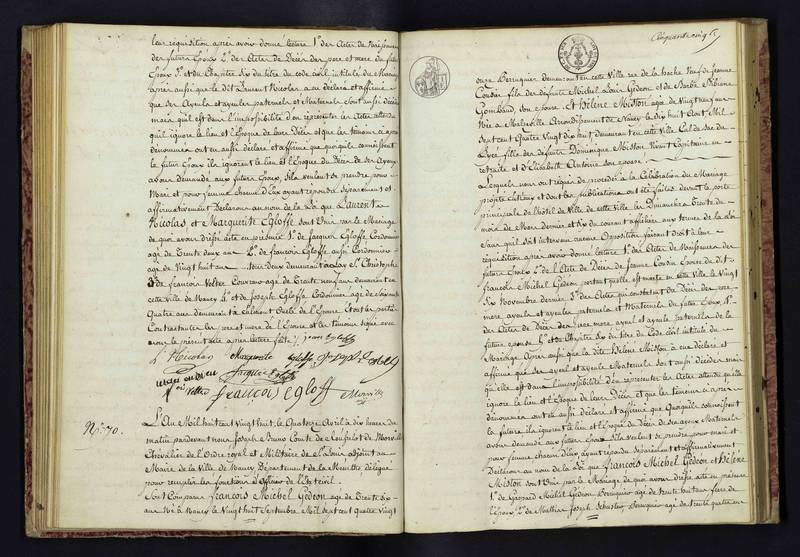 leur réquisition après avoir donné lecture 1° des Actes de Naissance
des futurs Epoux 2° des Actes de Décès des père et mère du futur
Epoux 3° et du Chapitre six du titre du code civil intitulé du Mariage
après aussi que le dit Laurent Nicolas a déclaré et affirmé
que ses Ayeuls et ayeules paternels et Maternels sont aussi décédés
mais qu'il est dans l'impossibilité d'en représenter les Actes attendu
qu'il ignore le lieu et l'époque de leurs Décès et que les témoins ci après
dénommés ont aussi déclaré et affirmé que quoiqu'ils connoissent
le futur Epoux ils ignorent le lieu et l'époque du Décès de ses Ayeux
avons demandé aux futurs Epoux s'ils veulent se prendre pour
Mari et pour femme chacun d'Eux ayant répondu séparément et
affirmativement Déclarons au nom de la Loi que Laurent
Nicolas et Marguerite Egloffe sont Unis par le Mariage
de quoi avons dressé acte en présence 1° de Jacques Egloffe Cordonnier
agé de Trente deux ans 2° de François Egloffe aussi Cordonnier
agé de Vingt huit ans tous deux demeurant à Laxou St Christophe
3° de François Velter agé de Trente neuf ans demeurant en
cette ville de Nancy 4° et de Joseph Egloffe Cordonnier agé de soixante
Quatre ans demeurant à
Contractantes les père et mère de l'Epouse et les témoins signé avec
nous le présent acte après lecture faite
L. Nicolas Marguerite Egloffe Joseph Egloffe
Jacques Egloffe
Velter François Egloff Morville
N° 70.
L'An Mil huit cent Vingt huit, le Quatre Avril à dix heures du
matin pardevant nous Joseph Bruno Comte de Morville
Chevalier de l'Ordre royal et Militaire de St Louis adjoint au
Maire de la Ville de Nancy Département de la Meurthe, délégué
pour remplir les fonctions d'officier de l'Etat civil.
Sont Comparus François Michel Gédéon agé de Trente six
ans Né à Nancy le Vingt huit Septembre Mil sept cent quatre vingt
Cinquante cinq
onze Perruquier demeurant en cette Ville rue de la hache Veuf de Jeanne
Cousin fils des défunts Michel Louis Gédéon et de Barbe Bibiane
Gombaud, son épouse. Et Hélène Miston agée de Vingt neuf ans
Née à Malzéville Arrondissement de Nancy le dix huit Août Mil
sept cent Quatre Vingt dix huit demeurant en cette Ville Cul de Sac du
Lycée fille des défunts Dominique Miston Vivant Capitaine en
retraite et d'Elisabeth Antoine son épouse
Lesquels nous ont requis de procéder à la Célébration du Mariage
projeté entr'eux et dont les publications ont été faites devant la porte
principale de l'hôtel de Ville de cette Ville les Dimanches Trente du
mois de Mars dernier et six du courant affichées aux termes de la loi
sans qu'il soit intervenu aucune Opposition faisant droit à leur
réquisition après avoir donné lecture 1° des Actes de Naissance des
futurs Epoux 2° de l'Acte de Décès de Jeanne Cousin épouse du dit
François Michel Gédéon portant qu'elle est morte en cette Ville le Vingt
Six Novembre dernier 3° des Actes qui constatent du Décès des père
mère ayeuls et ayeules paternels et Maternels du futur Epoux 4°
des Actes de Décès des père mère ayeul et ayeule paternels de la
future épouse 5° et du Chapitre six du titre du Code civil intitulé du
Mariage Après aussi que la dite Hélène Miston a déclaré et
affirmé que ses ayeul et ayeule Maternels sont aussi décédés mais
qu'elle est dans l'impossibilité d'en représenter les Actes attendu qu'elle
ignore le lieu et l'Epoque de leurs Décès et que les témoins ci après
dénommés ont aussi déclaré et affirmé que Quoiqu'ils connoissent
la future, ils ignorent le lieu et l'Epoque du Décès de ses ayeux Maternels
avons demandé aux futurs Epoux s'ils veulent se prendre pour mari et
pour femme chacun d'Eux ayant répondu séparément et affirmativement
Déclarons au nom de la Loi que François Michel Gédéon et Hélène
Miston sont Unis par le Mariage de quoi avons dressé acte en présence
1° de Gaspard Michel Gédéon Perruquier agé de trente huit ans frère de
l'Epoux 2° de Mathieu Joseph Sébastien Perruquier agé de trente quatre ans